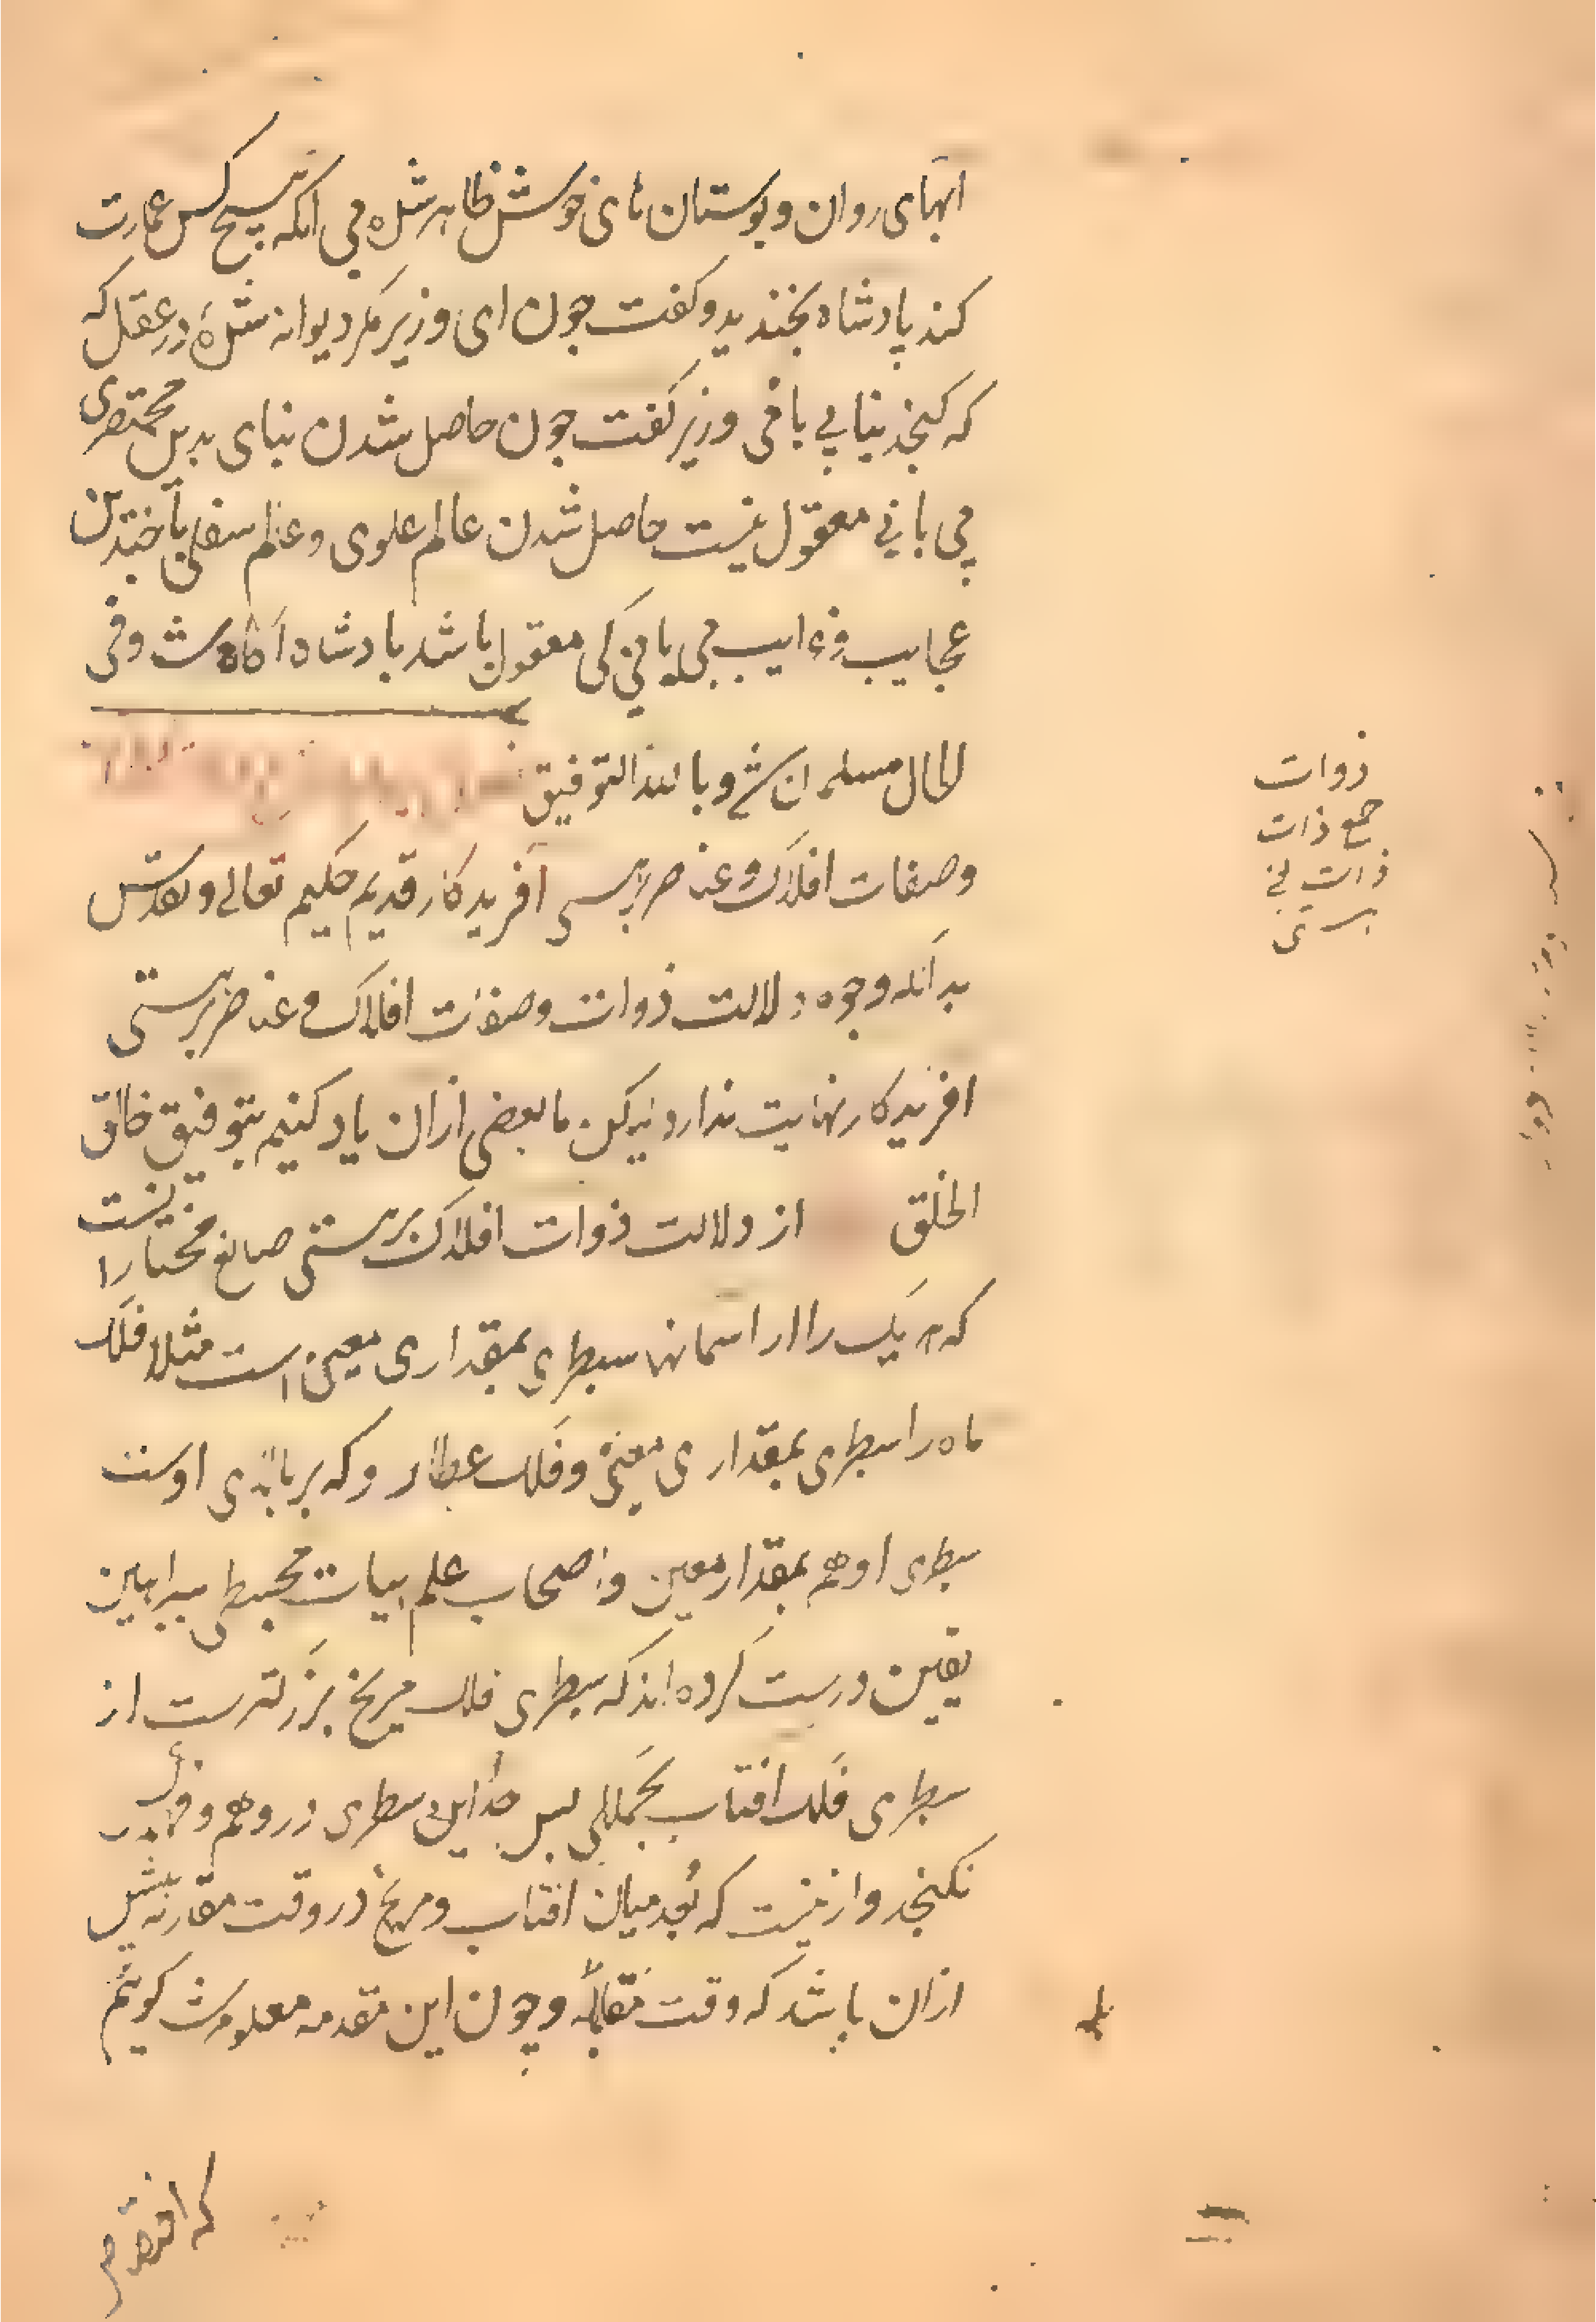 ابهای روان و بوستان های خوش ظاهر شده بی انکه هیچ کس عمارت
کند پادشاه بخندید و کفت جون ای وزیر مکر دیوانه شدهٔ در عقل که
که کنجد بنا بی بانی وزیر کفت جون حاصل شدن بنای بدین مختصری
بی بانی معقول نیست حاصل شدن عالم علوی و عالم سفلی با چندین
عجایب و غرایب بی بانی کی معقول باشد بادشاه اکاه شد و فی
الحال مسلمان شد و بالله التوفیق
وصفات افلاک و عناصر بر هستی آفریدکار قدیم حکیم تعالی و تقدس
بدانکه وجوه دلالت ذوات وصفات افلاک و عناصر بر هستی
افریدکار نهایت ندارد لیکن ما بعضی ازان یاد کنیم بتوفیق خالق
الخلق از دلالت ذوات افلاک بر هستی صانع مختار انست
که هر یک را از اسمانها سطبری بمقداری معین است مثلا فلک
ماه را سطبری بمقداری معین و فلک عطارد که بر بالای اوست
سطبری او هم بمقدار معین و اصحاب علم هیات مجسطی ببراهین
یقین درست کرده اند که سطبری فلک مریخ بزرکترست از
سطبری فلک افتاب بجملکی بس جدا این سطبری در وهم و فهم
نکنجد و ازینست که بُعد میان افتاب و مریخ در وقت مقارنه بیش
ازان باشد که وقت مقابله و چون این مقدمه معلوم شد کوئیم
ذوات
جمع ذات
ذات یعنی
هستی